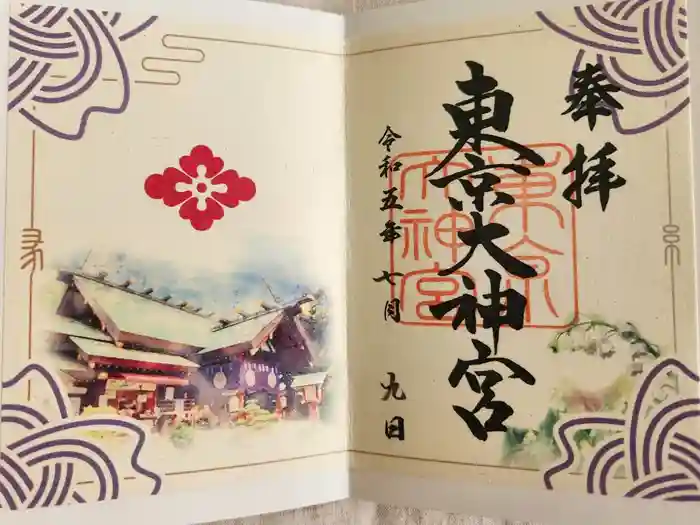 奉拝
東京大神宮
東京大神宮
令和五年七月九日